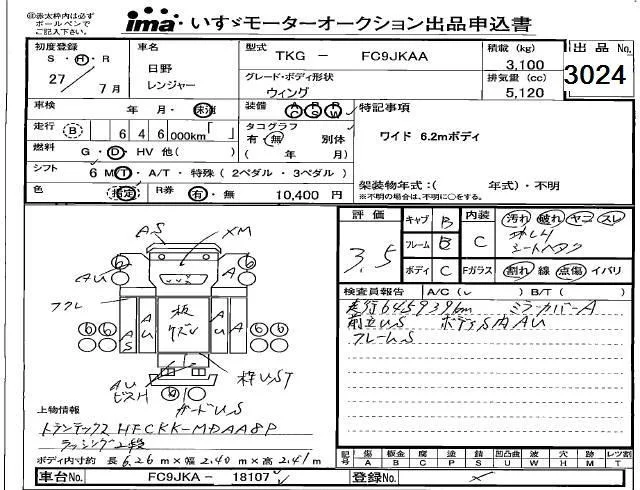 ㊟赤太枠内は必ず
ボールペンで
ご記入下さい。
ima いすゞモーターオークション出品申込書
初度登録
S・H・R
27/7月
車名
日野
レンジャー
型式
TKG - FC9JKAA
グレード・ボディ形状
ウィング
積載 (kg)
3,100
排気量 (cc)
5,120
出品No.
3024
車検 年・月・抹消
装備 AC PS PW
走行 B 646 000km「 」
タコグラフ
有・無 別体
( 年 月)
燃料 G・D・HV 他( )
シフト 6 MT・A/T・特殊 ( 2ペダル・3ペダル )
色 指定 R券 有・無 10,400 円
特記事項
ワイド 6.2mボディ
架装物年式:( 年式)・不明
※不明の場合は、不明に○をする。
評価
3.5
キャブ B
フレーム B
ボディ C
内装 C
汚れ 破れ ヤニ スレ
シートヘタリ
Fガラス 割れ 線 点傷 イバリ
検査員報告 A/C ( ) B/T ( )
走行645939km ミラーカバーA
前立US ボディS内AU
フレームS
AS
XM
AU
A
フクレ
板
ケズレ
AS
AU
AU
A
AU
ビスト
枠US T
ガードUS
上物情報
トランテックス HFCKK-MDAA8P
ラッシング2段
ボディ内寸約 長 6.26m × 巾 2.40m × 高 2.41m
記号 傷A 板金B 腐C 塗P 錆S 凹凸曲U 波W 穴H 跡M レツ割T
車台No. FC9JKA - 18107
登録No.